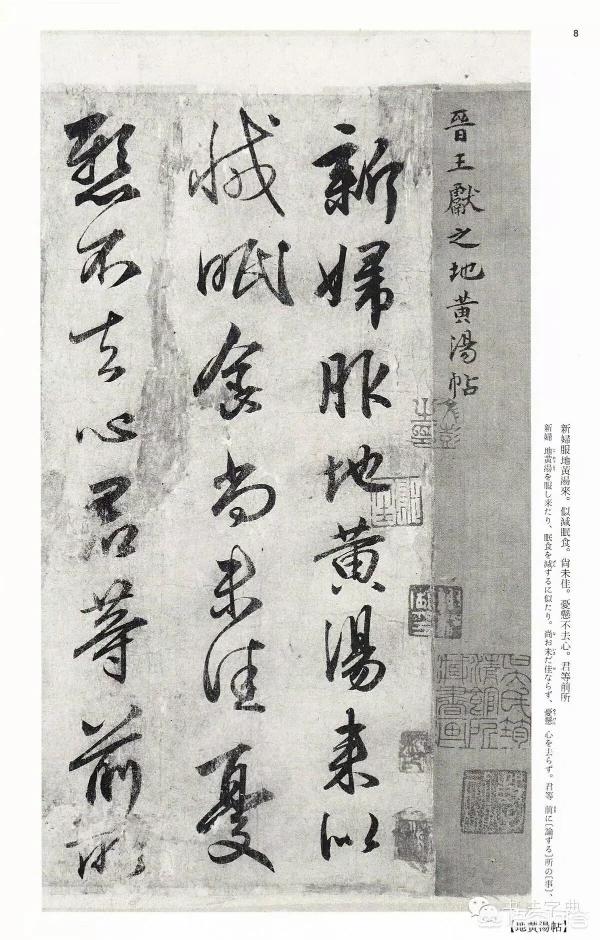 8
晉王獻之地黄湯帖
新婦服地黄湯来似
減眠食尚未佳憂
懸不去心君等前所
新婦服地黄湯來。似減眠食。尙未佳。憂懸不去心。君等前所
新婦 地黄湯を服し来たり、眠食を減ずるに似たり。尙お未だ佳ならず、憂懸 心を去らず。君等 前に〔論ずる〕所の〔事〕、
吳氏筠清館所藏書画
书法字典
【地黄湯帖】